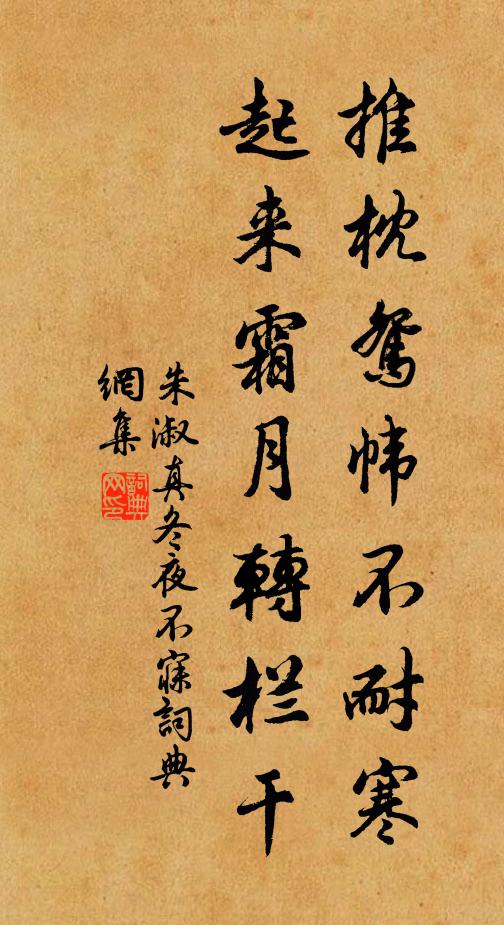 推枕鸳帏不耐寒
起来霜月轉栏干
朱淑真冬夜不寐詞典
網集
詞典
网印